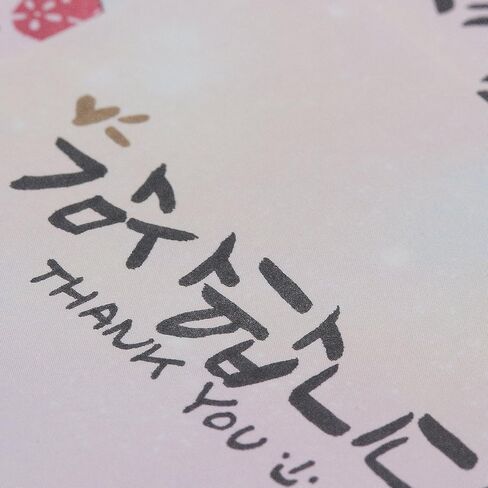 감사합니다
THANK YOU